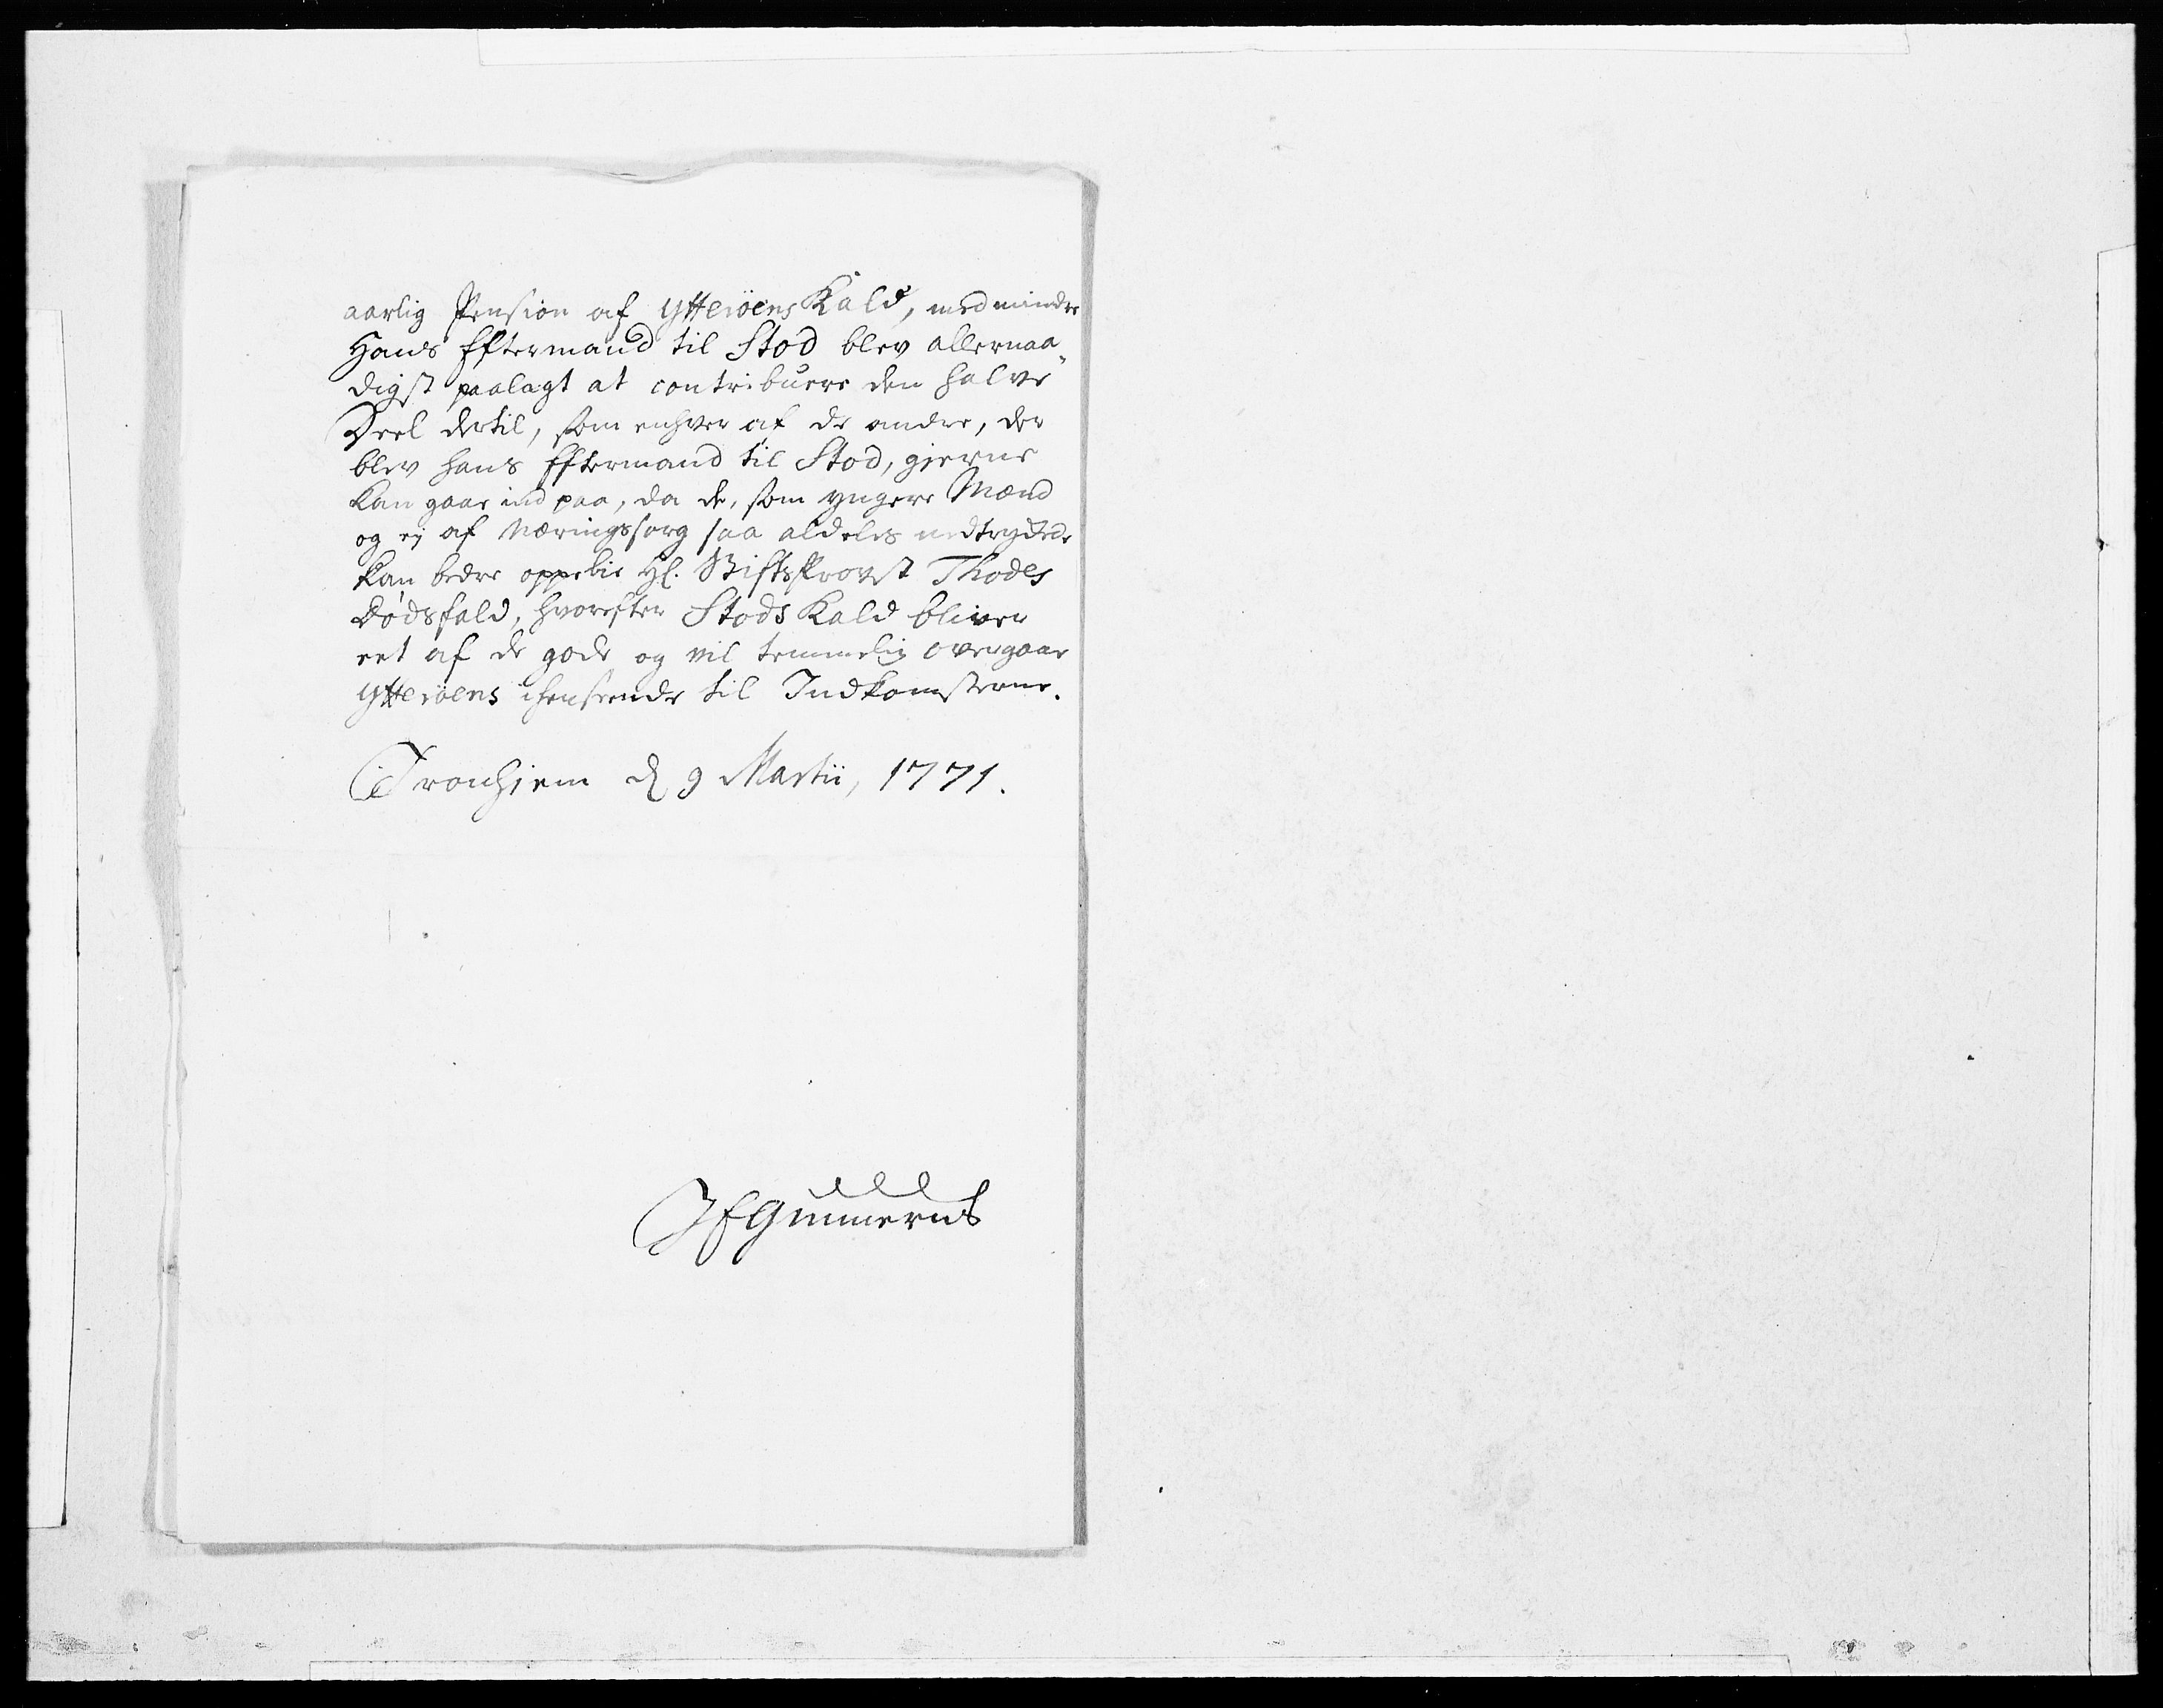 aarlig Pension af Ytterøens Kald, med mindre
Hans Eftermand til Stod blev allernaa-
digst paalagt at contribuere den halve
Deel dertil, som enhver af de andre, der
blev hans Eftermand til Stod, gierne
kan gaae ind paa, da de, som yngere Mænd
og ej af Næringssorg saa aldeles nedtrykte
kan bedre oppebie Hl. Stiftsprovst Thodes
Dødsfald, hvorefter Stods Kald bliver
eet af de gode og vil temmelig overgaae
Ytterøens ihenseende til Indkomsterne.
Tronhiem d 9 Martii, 1771.
JEGunnerus